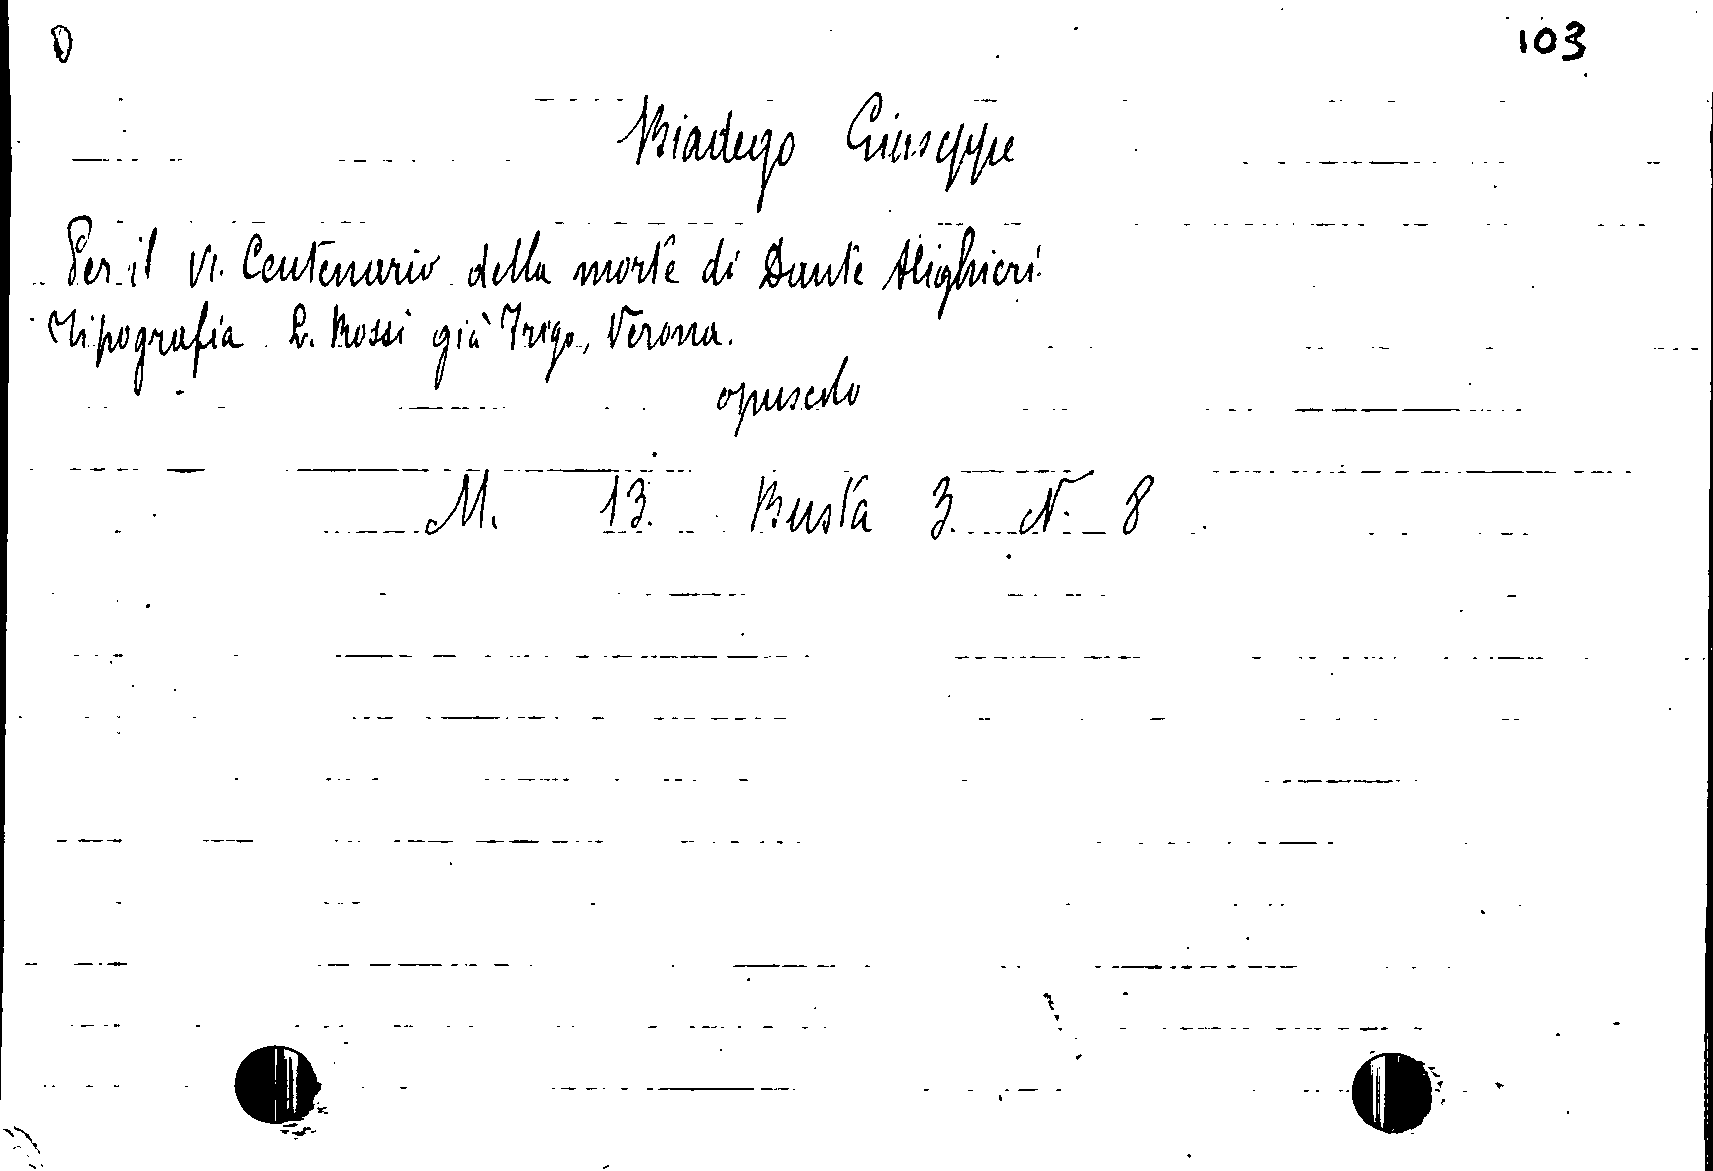 O 103
Biadego Giuseppe
Per il VI. Centenario della morte di Dante Alighieri.
Tipografia L. Rossi già Frizo, Verona.
opuscolo
M. 13. Busta 3. N. 8